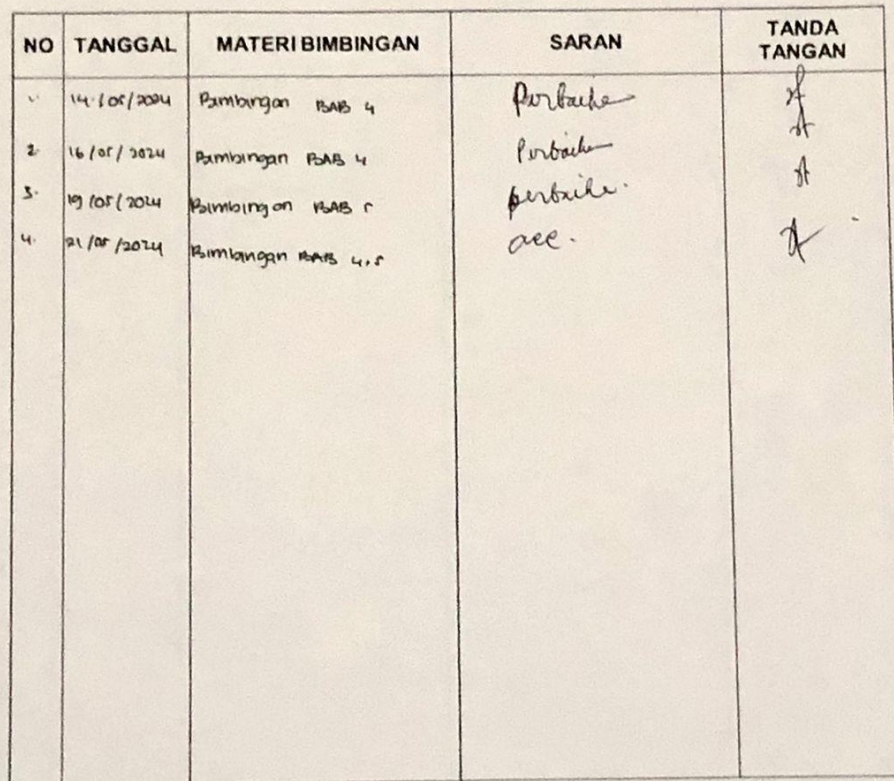 NO TANGGAL MATERI BIMBINGAN SARAN TANDA TANGAN
1. 14/05/2024 Bimbingan BAB 4 Perbaike
2. 16/05/2024 Bimbingan BAB 4 Perbaike
3. 19/05/2024 Bimbingan BAB 5 perbaike.
4. 21/05/2024 Bimbingan BAB 4,5 acc.